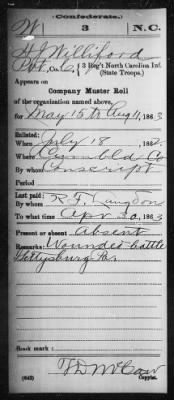 Confederate.
W 3 N.C.
H J Williford
Pvt, Co. 3 Reg't North Carolina Inf.
(State Troops.)
Appears on
Company Muster Roll
of the organization named above,
for May 15 to Aug 11, 1863
Enlisted:
When July 18, 186
Where Co
By whom Conscript
Period
Last paid:
By whom R. F. Langdon
To what time Apr 30, 1863
Present or absent Absent
Remarks: Wounded battle
Gettysburg Pa.
Book mark:
(642) Copyist.